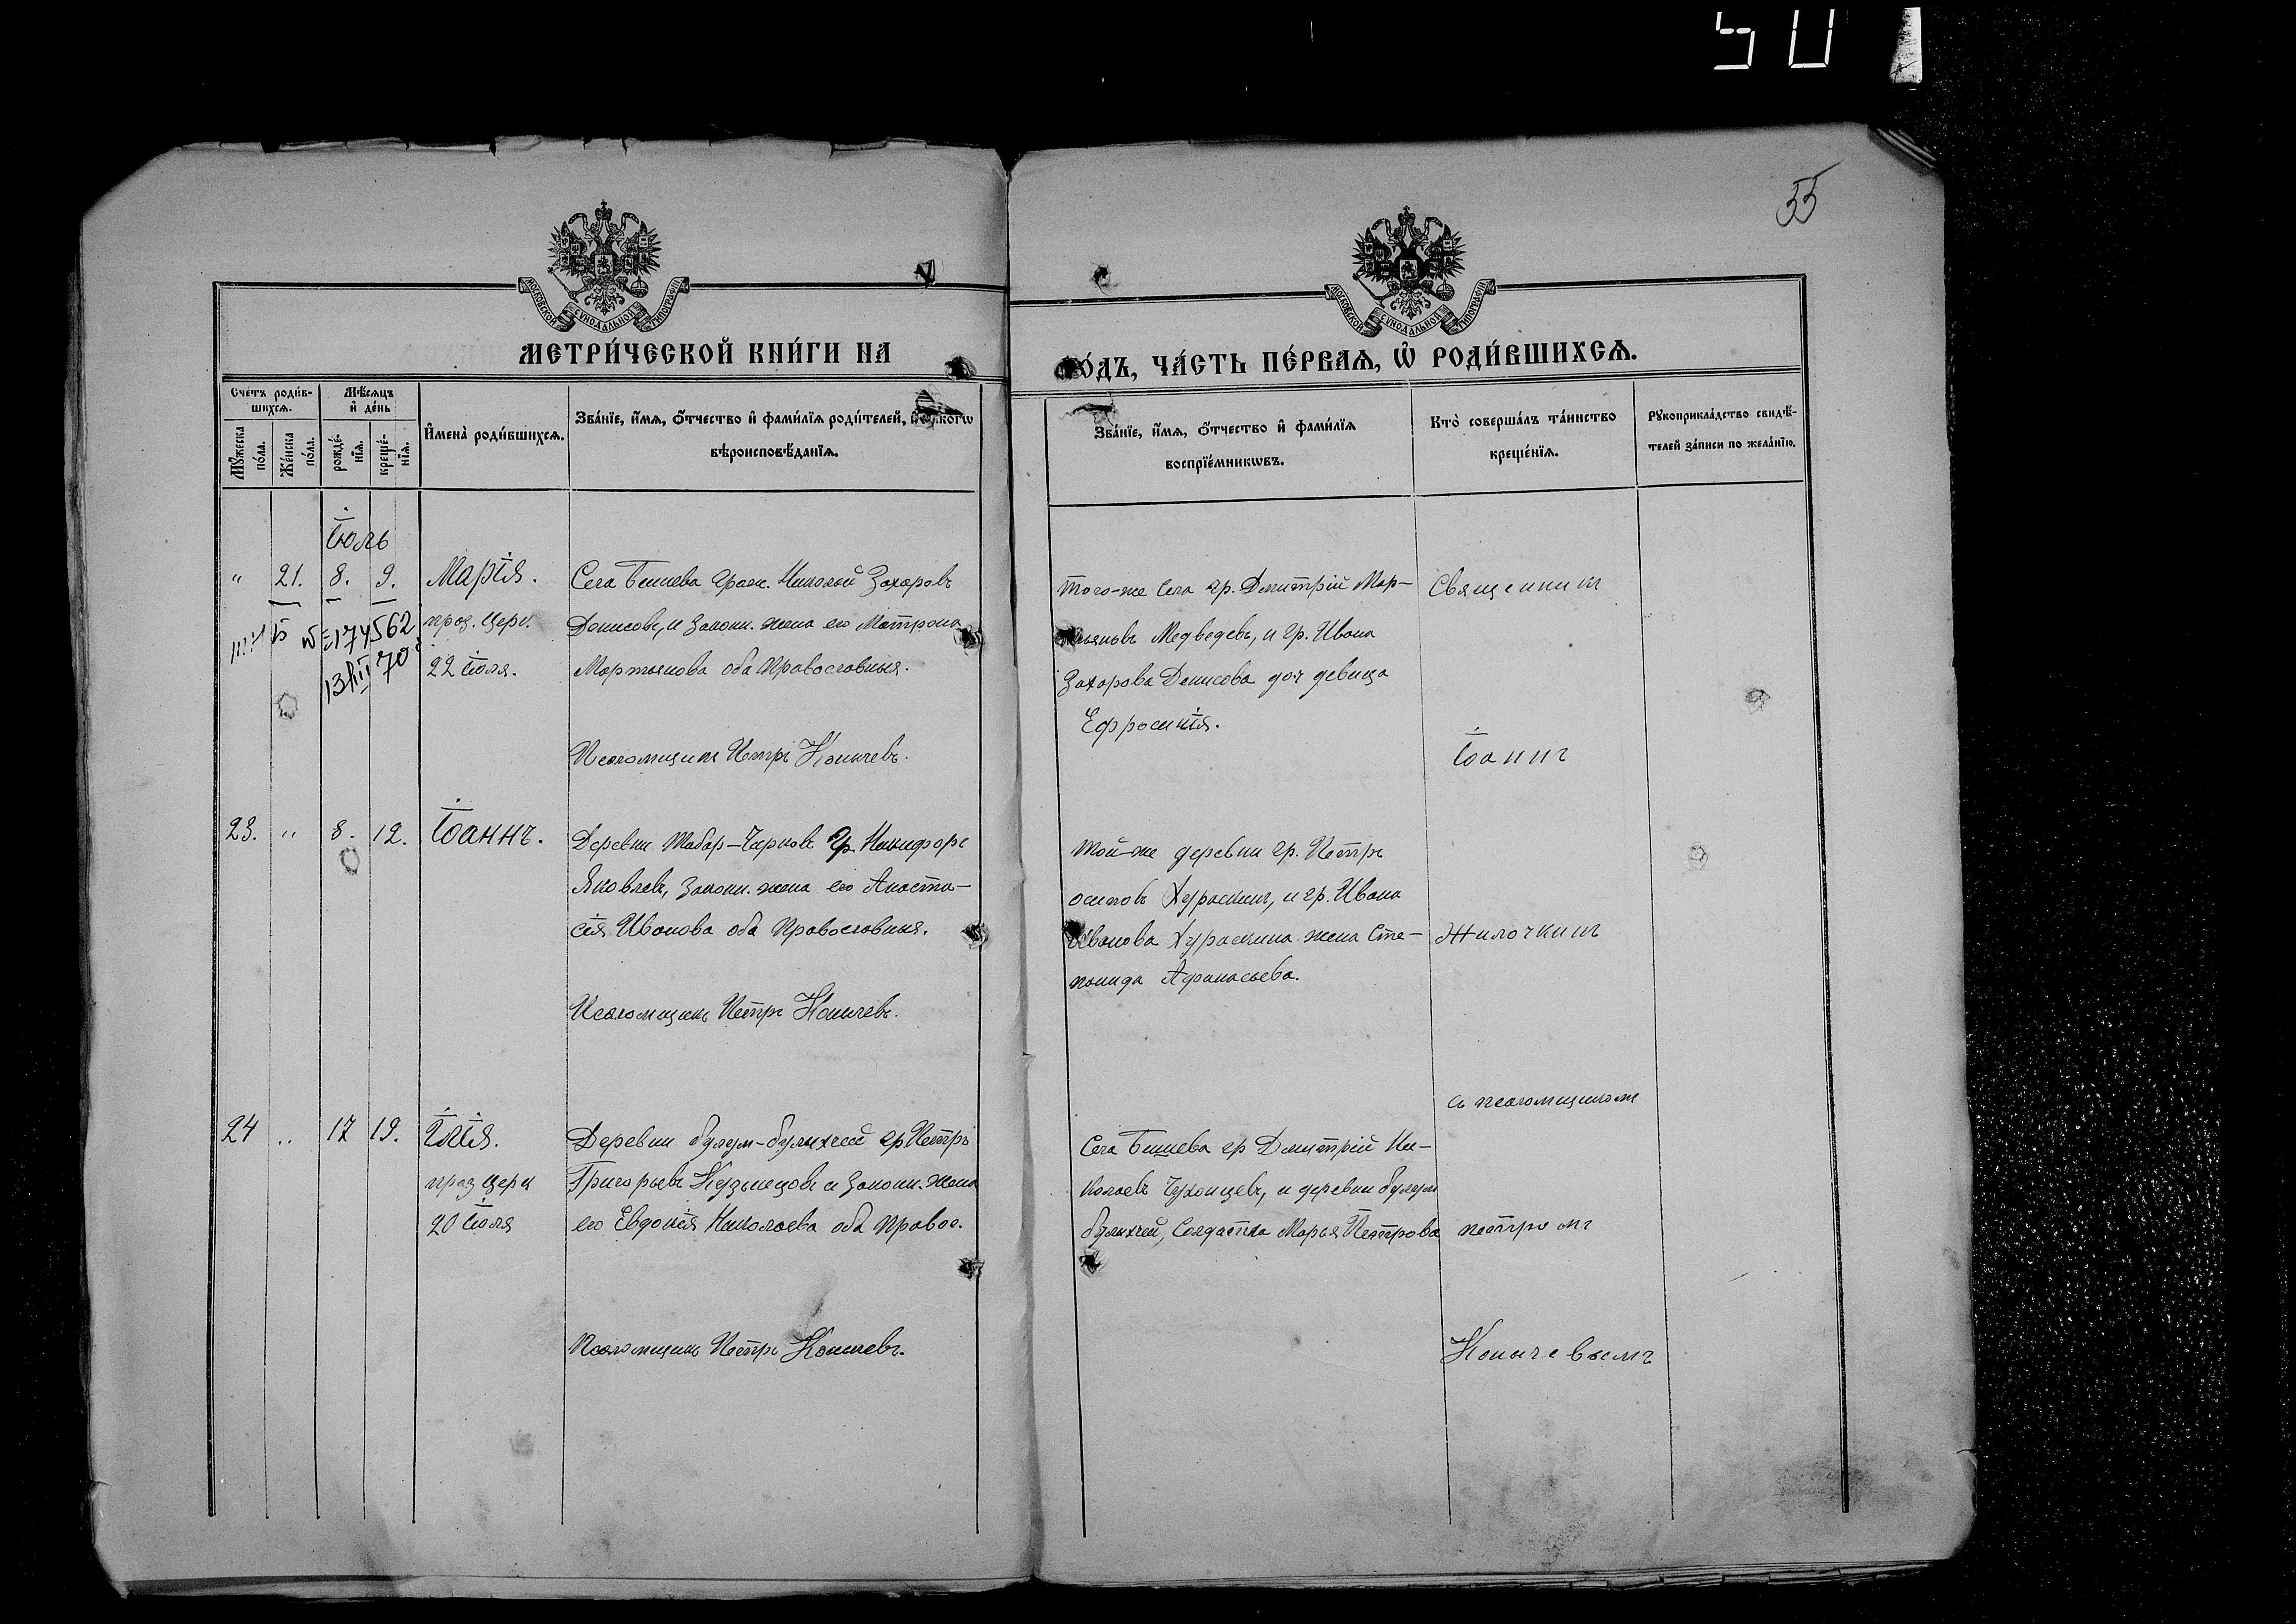 50
55
МОСКОВСКОЙ СѴНОДАЛЬНОЙ ТИПОГРАФІИ
МОСКОВСКОЙ СѴНОДАЛЬНОЙ ТИПОГРАФІИ
МЕТРИ́ЧЕСКОЙ КНИ́ГИ НА
ГО́ДЪ, ЧА́СТЬ ПЕ́РВАѦ, Ѡ҆ РОДИ́ВШИХСѦ.
Счетъ роди́в-
шихсѧ.
Мꙋ́жеска
по́ла.
Же́нска
по́ла.
Мѣ́сѧцъ
и҆ де́нь
рожде́-
нїѧ.
креще́-
нїѧ.
И҆мена̀ роди́вшихсѧ.
Зва́нїе, и҆́мѧ, ѻ҆́тчество и҆ фами́лїѧ роди́телей, и҆ како́гѡ
вѣроисповѣ́данїѧ.
Зва́нїе, и҆́мѧ, ѻ҆́тчество и҆ фами́лїѧ
воспрїе́мникѡвъ.
Кто̀ соверша́лъ та́инство
креще́нїѧ.
Рꙋкоприкла́дство свидѣ́-
телей за́писи по жела́нїю.
Іюль
" 21. 8. 9. Марія.
174562
13/III 70
праз. церк.
22 Іюля.
Села Бишева граж. Николай Захаровъ
Денисовъ, и законн. жена его Матрона
Мартьянова оба Православныя.
Псаломщикъ Петръ Конычевъ.
того-же села гр. Дмитрій Мар-
тьяновъ Медведевъ, и гр. Ивана
Захарова Денисова доч девица
Ефросинія.
23. " 8. 12. Іоаннъ.
Деревни Табар-Черковъ Гр. Никифоръ
Яковлевъ, законн. жена его Анаста-
сія Иванова оба Православныя.
Псаломщикъ Петръ Конычевъ.
той-же деревни гр. Петръ
осиповъ Хураскинъ, и гр. Ивана
Иванова Хураскина жена Сте-
панида Афанасьева.
24 " 17 19. Илія.
праз церк
20 Іюля
Деревни булум-булыхчей гр Петръ
Григорьевъ Кузьнецовъ и законн. жена
его Евдокія Николаева оба правос.
Псаломщикъ Петръ Конычевъ.
Села Бишева гр Дмитрій Ни-
колаевъ Чухонцевъ, и деревни булум
булыхчей, Солдатка Марья Петрова
Священникъ
Іоаннъ
Жилочкинъ
съ псаломщикомъ
петромъ
Конычевымъ